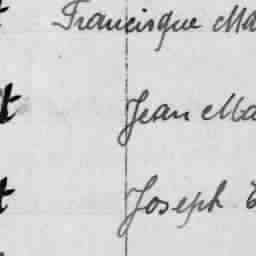 Francisque Ma
Jean Ma
Joseph